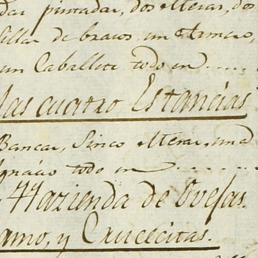 dar pintadas, dos Mesas, dos
Sillas de brazos un Armario,
un Caballete todo en
las cuatro Estancias
Bancas, Sinco Mesas, una
Ignacio todo en
Hazienda de Ovejas.
amo, y Crucecitas.